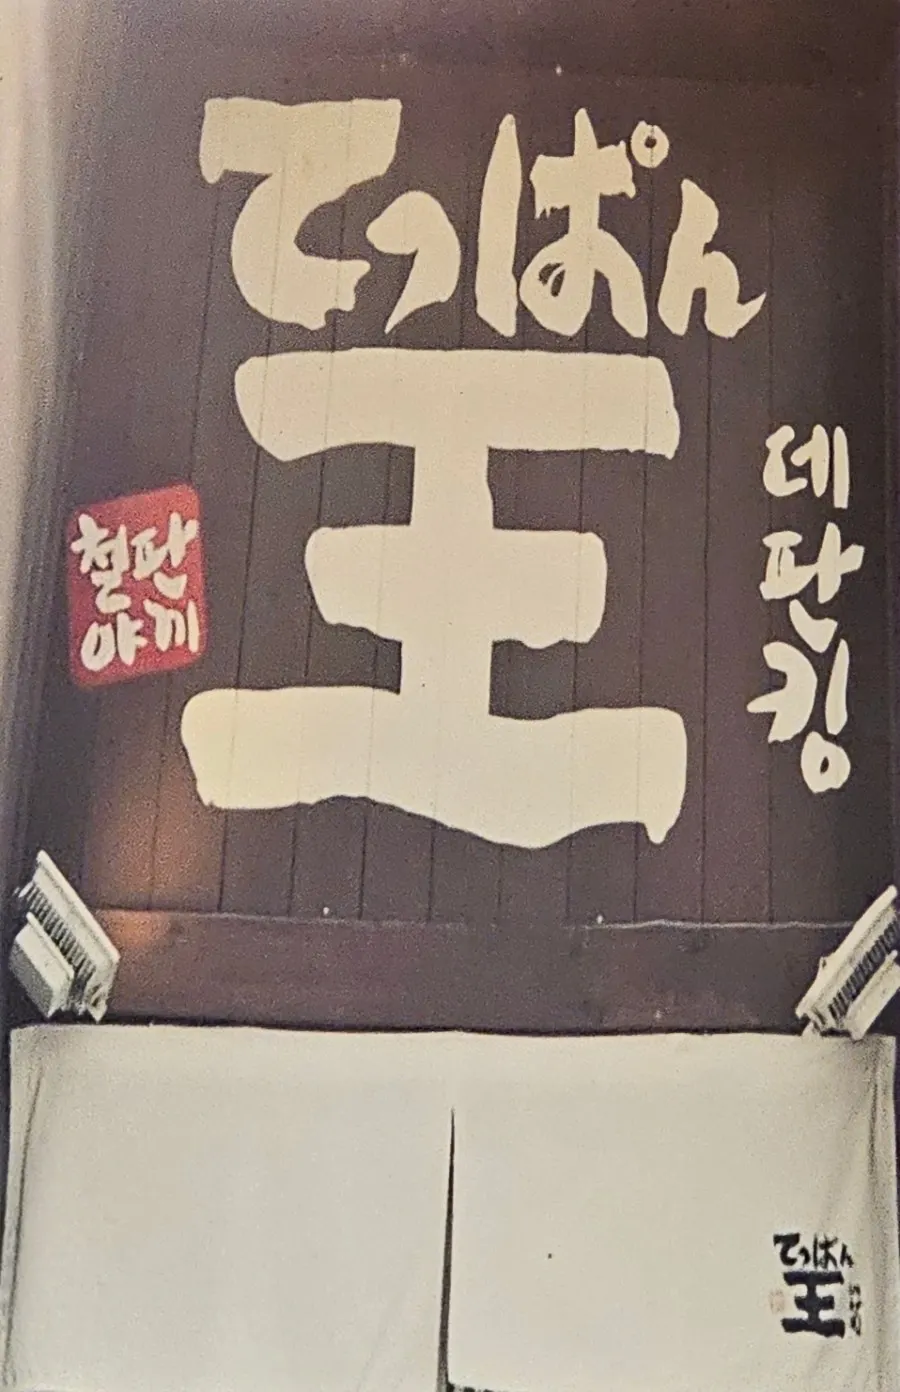 てっぱん
王
데판킹
철판
야끼
てっぱん
王